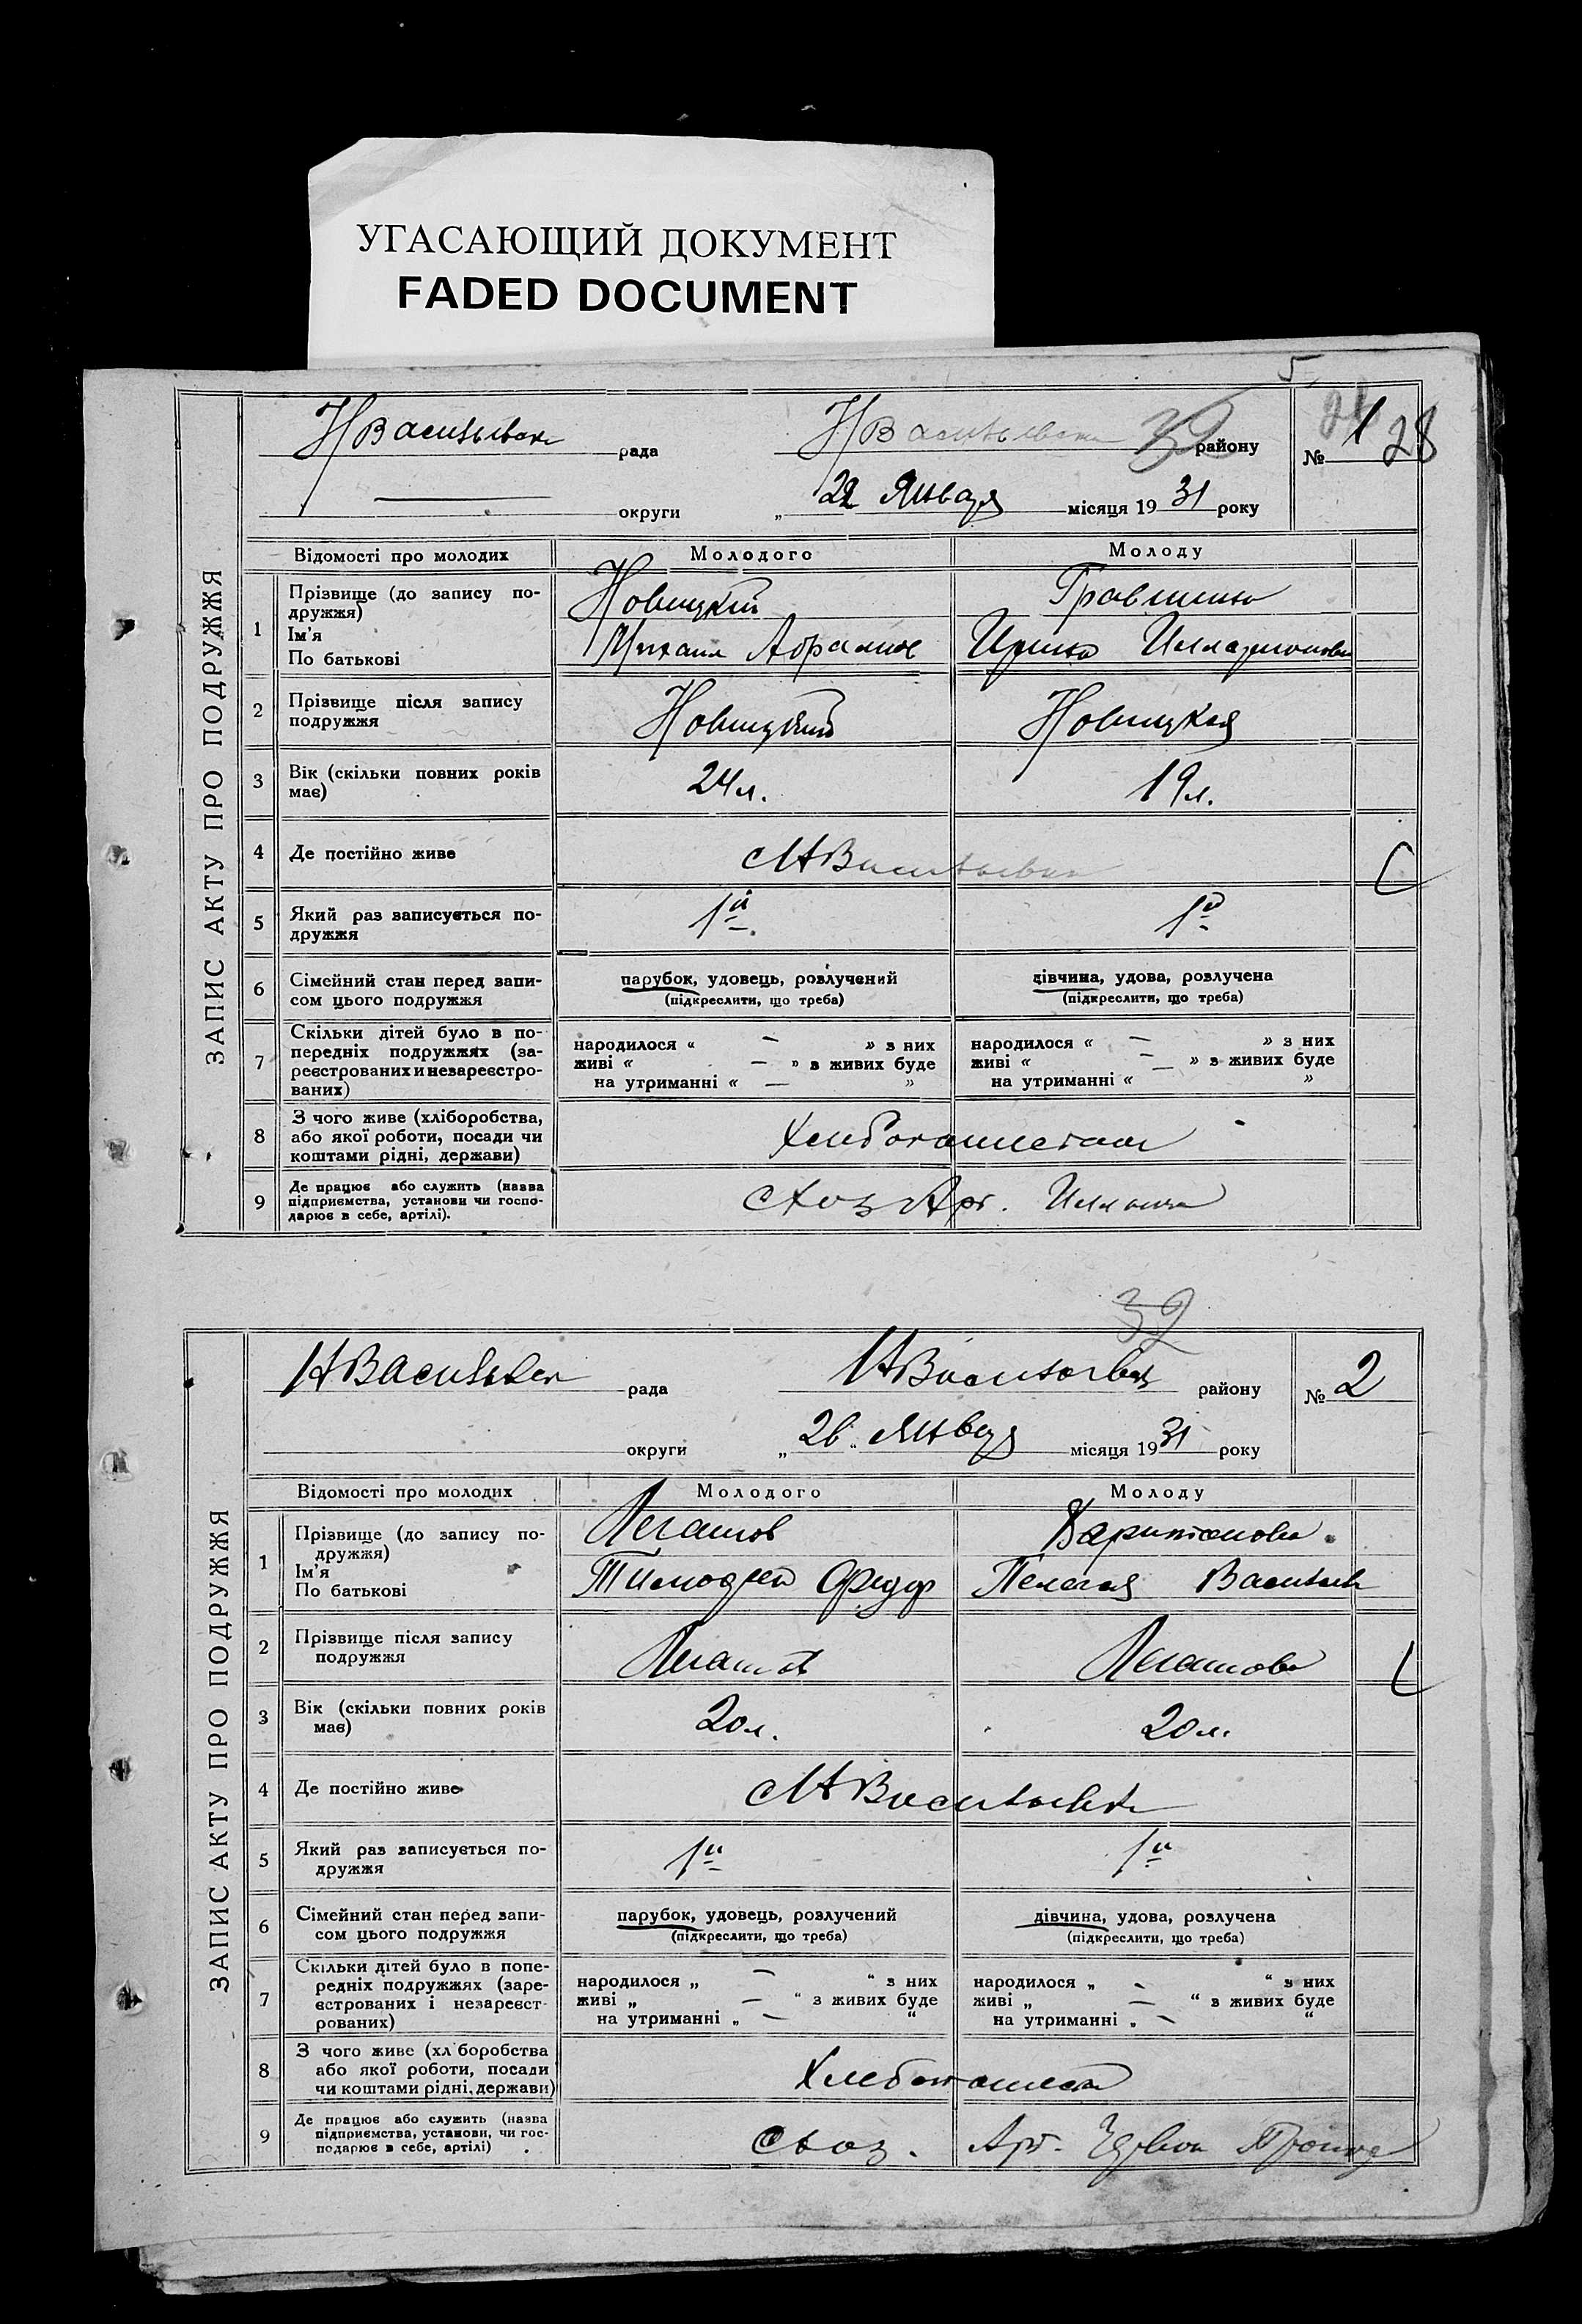 УГАСАЮЩИЙ ДОКУМЕНТ
FADED DOCUMENT
5
ЗАПИС АКТУ ПРО ПОДРУЖЖЯ
рада
району
32
№ 1
28
округи
„ 22 Января місяця 1931 року
Відомості про молодих Молодого Молоду
1 Прізвище (до запису по-
дружжя)
Ім'я
По батькові
Новицкий
Михаил
2 Прізвище після запису
подружжя
Новицкий Новицкая
3 Вік (скільки повних років
має)
24 л. 19 л.
4 Де постійно живе
5 Який раз записується по-
дружжя
1й 1й
6 Сімейний стан перед запи-
сом цього подружжя
парубок, удовець, розлучений дівчина, удова, розлучена
(підкреслити, що треба) (підкреслити, що треба)
7 Скільки дітей було в по-
передніх подружжях (за-
реєстрованих и незареєстро-
ваних)
народилося “ — » з них народилося “ — » з них
живі “ — » з живих буде живі “ — » з живих буде
на утриманні “ — » на утриманні “ »
8 З чого живе (хліборобства,
або якої роботи, посади чи
коштами рідні, держави)
9 Де працює або служить (назва
підприємства, установи чи госпо-
дарює в себе, артілі).
32
ЗАПИС АКТУ ПРО ПОДРУЖЖЯ
рада
району
№ 2
округи
„ 26 “ Января місяця 1931 року
Відомості про молодих Молодого Молоду
1 Прізвище (до запису по-
дружжя)
Ім'я
По батькові
Харитонова
Тимофей Федор Пелагея Васильев
2 Прізвище після запису
подружжя
3 Вік (скільки повних років
має)
20 л. 20 л.
4 Де постійно живе
5 Який раз записується по-
дружжя
1й 1й
6 Сімейний стан перед запи-
сом цього подружжя
парубок, удовець, розлучений дівчина, удова, розлучена
(підкреслити, що треба) (підкреслити, що треба)
7 Скільки дітей було в попе-
редніх подружжях (заре-
єстрованих і незареєст-
рованих)
народилося „ — “ з них народилося „ — “ з них
живі „ — “ з живих буде живі „ — “ з живих буде
на утриманні „ — “ на утриманні „ — “
8 З чого живе (хл боробства
або якої роботи, посади
чи коштами рідні, держави)
9 Де працює або служить (назва
підприємства, установи, чи гос-
подарює в себе, артілі)
соз. Арт.